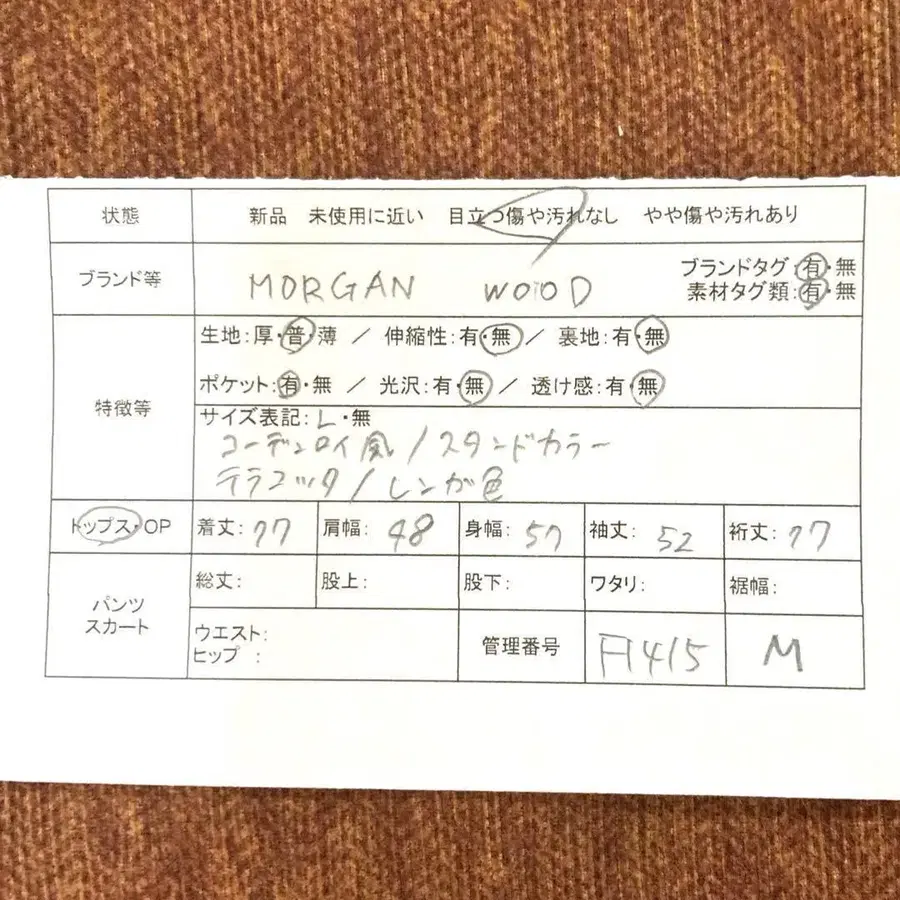 状態 新品 未使用に近い 目立つ傷や汚れなし やや傷や汚れあり
ブランド等 MORGAN WOOD ブランドタグ:有・無
素材タグ類:有・無
生地:厚・普・薄 / 伸縮性:有・無 / 裏地:有・無
ポケット:有・無 / 光沢:有・無 / 透け感:有・無
特徴等
サイズ表記:L・無
コーデュロイ風/スタンドカラー
テラコッタ/レンガ色
トップス・OP 着丈:77 肩幅:48 身幅:57 袖丈:52 裄丈:77
総丈: 股上: 股下: ワタリ: 裾幅:
パンツ
スカート
ウエスト:
ヒップ : 管理番号 F1415 M